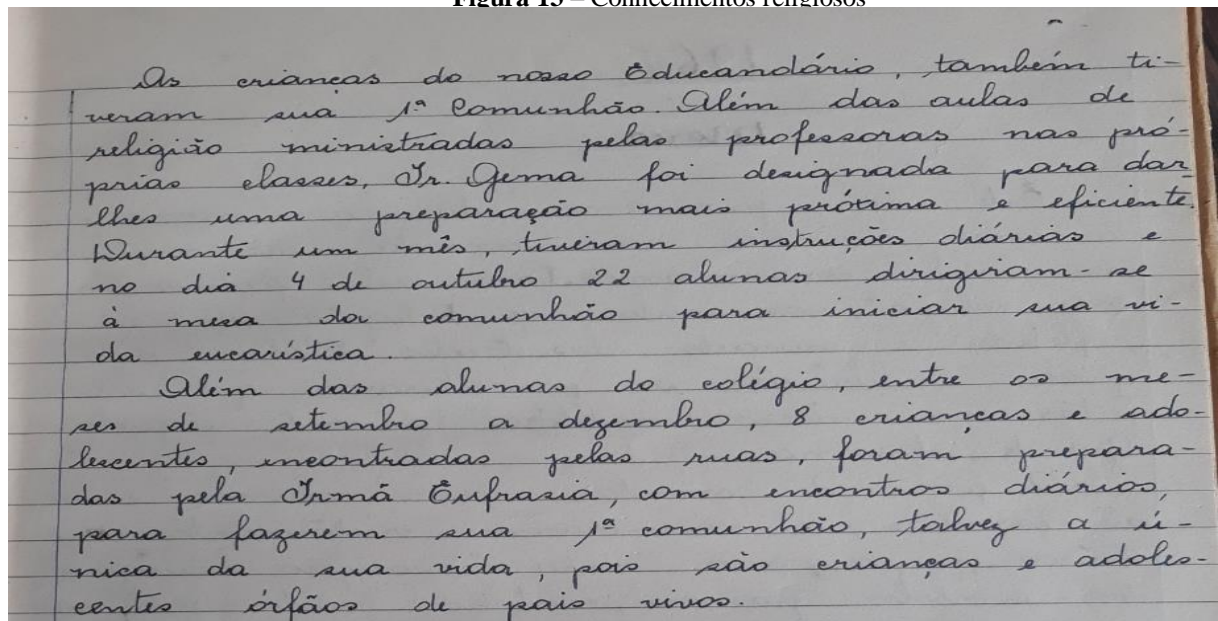 Figura 13 – Conhecimentos religiosos
As crianças do nosso Educandário, também ti-
veram sua 1ª Comunhão. Além das aulas de
religião ministradas pelas professoras nas pró-
prias classes, Ir. Gema foi designada para dar
lhes uma preparação mais próxima e eficiente.
Durante um mês, tiveram instruções diárias e
no dia 4 de outubro 22 alunas dirigiram-se
à mesa da comunhão para iniciar sua vi-
da eucarística.
Além das alunas do colégio, entre os me-
ses de setembro a dezembro, 8 crianças e ado-
lescentes, encontradas pelas ruas, foram prepara-
das pela Irmã Eufrasia, com encontros diários,
para fazerem sua 1ª comunhão, talvez a ú-
nica da sua vida, pois são crianças e adoles-
centes órfãos de pais vivos.